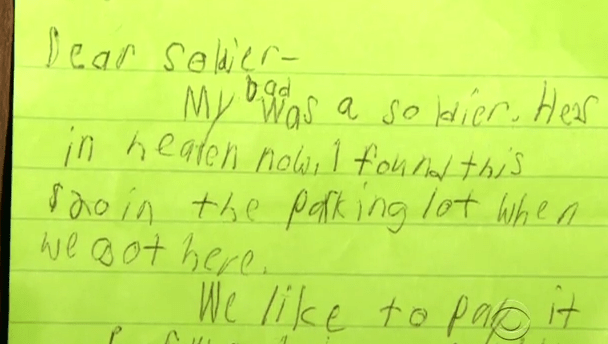 Dear soldier-
My Dad was a soldier. Hes
in heaven now. I found this
$20 in the parking lot when
we got here.
We like to pay it